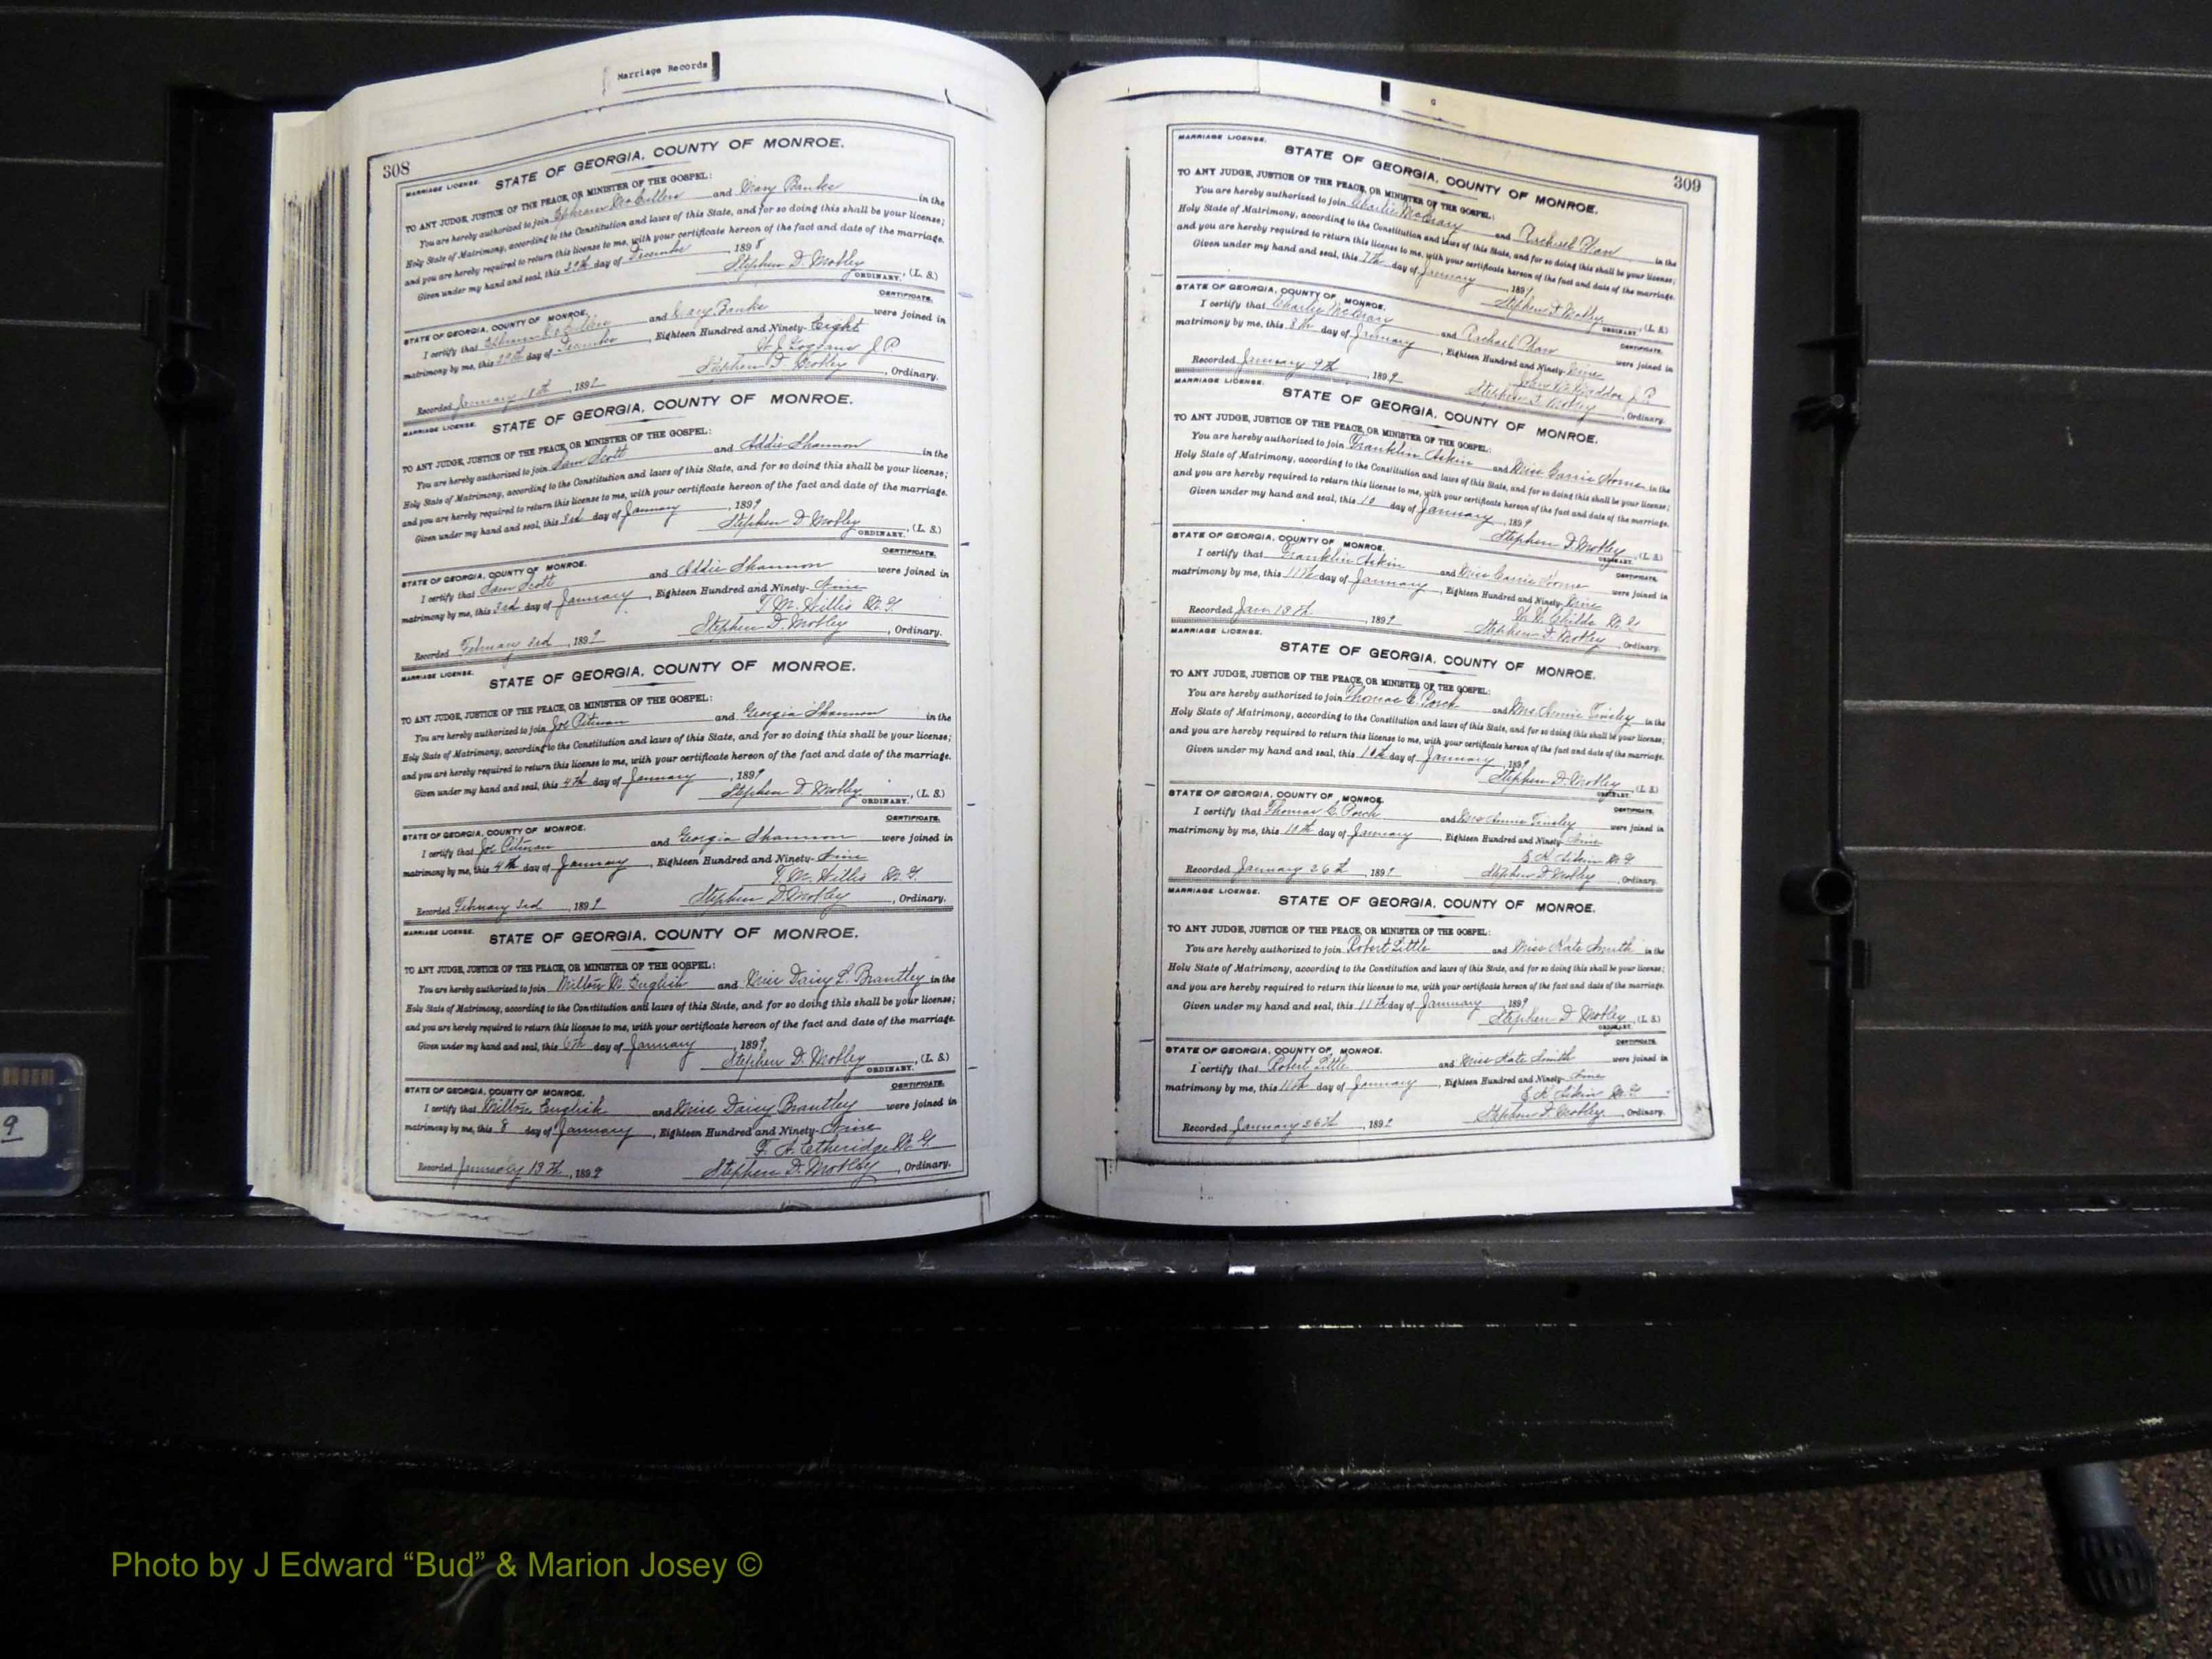 Marriage Records
308
MARRIAGE LICENSE.
STATE OF GEORGIA, COUNTY OF MONROE.
TO ANY JUDGE, JUSTICE OF THE PEACE, OR MINISTER OF THE GOSPEL:
You are hereby authorized to join Ephraim McCullers and Mary Banks in the
Holy State of Matrimony, according to the Constitution and laws of this State, and for so doing this shall be your license;
and you are hereby required to return this license to me, with your certificate hereon of the fact and date of the marriage.
Given under my hand and seal, this 29th day of December, 1898
Stephen D. Mobley, (L. S.)
ORDINARY.
CERTIFICATE.
STATE OF GEORGIA, COUNTY OF MONROE.
I certify that Ephraim McCullers and Mary Banks were joined in
matrimony by me, this 29th day of December, Eighteen Hundred and Ninety-Eight
J. P.
Stephen D. Mobley, Ordinary.
Recorded January, 189
MARRIAGE LICENSE.
STATE OF GEORGIA, COUNTY OF MONROE.
TO ANY JUDGE, JUSTICE OF THE PEACE, OR MINISTER OF THE GOSPEL:
You are hereby authorized to join Sam Scott and Addie Shannon in the
Holy State of Matrimony, according to the Constitution and laws of this State, and for so doing this shall be your license;
and you are hereby required to return this license to me, with your certificate hereon of the fact and date of the marriage.
Given under my hand and seal, this 3rd day of January, 1899
Stephen D. Mobley, (L. S.)
ORDINARY.
CERTIFICATE.
STATE OF GEORGIA, COUNTY OF MONROE.
I certify that Sam Scott and Addie Shannon were joined in
matrimony by me, this 3rd day of January, Eighteen Hundred and Ninety-Nine
T. M. Willis M. G.
Stephen D. Mobley, Ordinary.
Recorded February 3rd, 1899
MARRIAGE LICENSE.
STATE OF GEORGIA, COUNTY OF MONROE.
TO ANY JUDGE, JUSTICE OF THE PEACE, OR MINISTER OF THE GOSPEL:
You are hereby authorized to join Joe Pitman and Georgia Shannon in the
Holy State of Matrimony, according to the Constitution and laws of this State, and for so doing this shall be your license;
and you are hereby required to return this license to me, with your certificate hereon of the fact and date of the marriage.
Given under my hand and seal, this 4th day of January, 1899
Stephen D. Mobley, (L. S.)
ORDINARY.
CERTIFICATE.
STATE OF GEORGIA, COUNTY OF MONROE.
I certify that Joe Pitman and Georgia Shannon were joined in
matrimony by me, this 4th day of January, Eighteen Hundred and Ninety-Nine
T. M. Willis M. G.
Stephen D. Mobley, Ordinary.
Recorded February 3rd, 1899
MARRIAGE LICENSE.
STATE OF GEORGIA, COUNTY OF MONROE.
TO ANY JUDGE, JUSTICE OF THE PEACE, OR MINISTER OF THE GOSPEL:
You are hereby authorized to join Milton M. English and Miss Daisy L. Brantley in the
Holy State of Matrimony, according to the Constitution and laws of this State, and for so doing this shall be your license;
and you are hereby required to return this license to me, with your certificate hereon of the fact and date of the marriage.
Given under my hand and seal, this 6th day of January, 1899
Stephen D. Mobley, (L. S.)
ORDINARY.
CERTIFICATE.
STATE OF GEORGIA, COUNTY OF MONROE.
I certify that Milton English and Miss Daisy Brantley were joined in
matrimony by me, this 8 day of January, Eighteen Hundred and Ninety-Nine
F. A. Etheridge M. G.
Recorded January 19th, 1899 Stephen D. Mobley, Ordinary.
309
MARRIAGE LICENSE.
STATE OF GEORGIA, COUNTY OF MONROE.
TO ANY JUDGE, JUSTICE OF THE PEACE, OR MINISTER OF THE GOSPEL:
You are hereby authorized to join Charlie McCrary and Rachael in the
Holy State of Matrimony, according to the Constitution and laws of this State, and for so doing this shall be your license;
and you are hereby required to return this license to me, with your certificate hereon of the fact and date of the marriage.
Given under my hand and seal, this 7th day of January, 189
Stephen D. Mobley, (L. S.)
ORDINARY.
CERTIFICATE.
STATE OF GEORGIA, COUNTY OF MONROE.
I certify that Charlie McCrary and Rachael were joined in
matrimony by me, this 8th day of January, Eighteen Hundred and Ninety-Nine
J. P.
Recorded January 9th, 1899 Stephen D. Mobley, Ordinary.
MARRIAGE LICENSE.
STATE OF GEORGIA, COUNTY OF MONROE.
TO ANY JUDGE, JUSTICE OF THE PEACE, OR MINISTER OF THE GOSPEL:
You are hereby authorized to join Franklin Askin and Miss Carrie Horne in the
Holy State of Matrimony, according to the Constitution and laws of this State, and for so doing this shall be your license;
and you are hereby required to return this license to me, with your certificate hereon of the fact and date of the marriage.
Given under my hand and seal, this 10 day of January, 1899
Stephen D. Mobley, (L. S.)
ORDINARY.
CERTIFICATE.
STATE OF GEORGIA, COUNTY OF MONROE.
I certify that Franklin Askin and Miss Carrie Horne were joined in
matrimony by me, this 11th day of January, Eighteen Hundred and Ninety-Nine
Childs M. G.
Recorded Jan 19th, 1899 Stephen D. Mobley, Ordinary.
MARRIAGE LICENSE.
STATE OF GEORGIA, COUNTY OF MONROE.
TO ANY JUDGE, JUSTICE OF THE PEACE, OR MINISTER OF THE GOSPEL:
You are hereby authorized to join Thomas C. Porch and Mrs Annie Tinsley in the
Holy State of Matrimony, according to the Constitution and laws of this State, and for so doing this shall be your license;
and you are hereby required to return this license to me, with your certificate hereon of the fact and date of the marriage.
Given under my hand and seal, this 10th day of January, 1899
Stephen D. Mobley, (L. S.)
ORDINARY.
CERTIFICATE.
STATE OF GEORGIA, COUNTY OF MONROE.
I certify that Thomas C. Porch and Mrs Annie Tinsley were joined in
matrimony by me, this 10th day of January, Eighteen Hundred and Ninety-Nine
M. G.
Recorded January 26th, 1899 Stephen D. Mobley, Ordinary.
MARRIAGE LICENSE.
STATE OF GEORGIA, COUNTY OF MONROE.
TO ANY JUDGE, JUSTICE OF THE PEACE, OR MINISTER OF THE GOSPEL:
You are hereby authorized to join Robert Little and Miss Kate Smith in the
Holy State of Matrimony, according to the Constitution and laws of this State, and for so doing this shall be your license;
and you are hereby required to return this license to me, with your certificate hereon of the fact and date of the marriage.
Given under my hand and seal, this 11th day of January, 1899
Stephen D. Mobley, (L. S.)
ORDINARY.
CERTIFICATE.
STATE OF GEORGIA, COUNTY OF MONROE.
I certify that Robert Little and Miss Kate Smith were joined in
matrimony by me, this 11th day of January, Eighteen Hundred and Ninety-Nine
M. G.
Stephen D. Mobley, Ordinary.
Recorded January 26th, 1899
9
Photo by J Edward “Bud” & Marion Josey ©